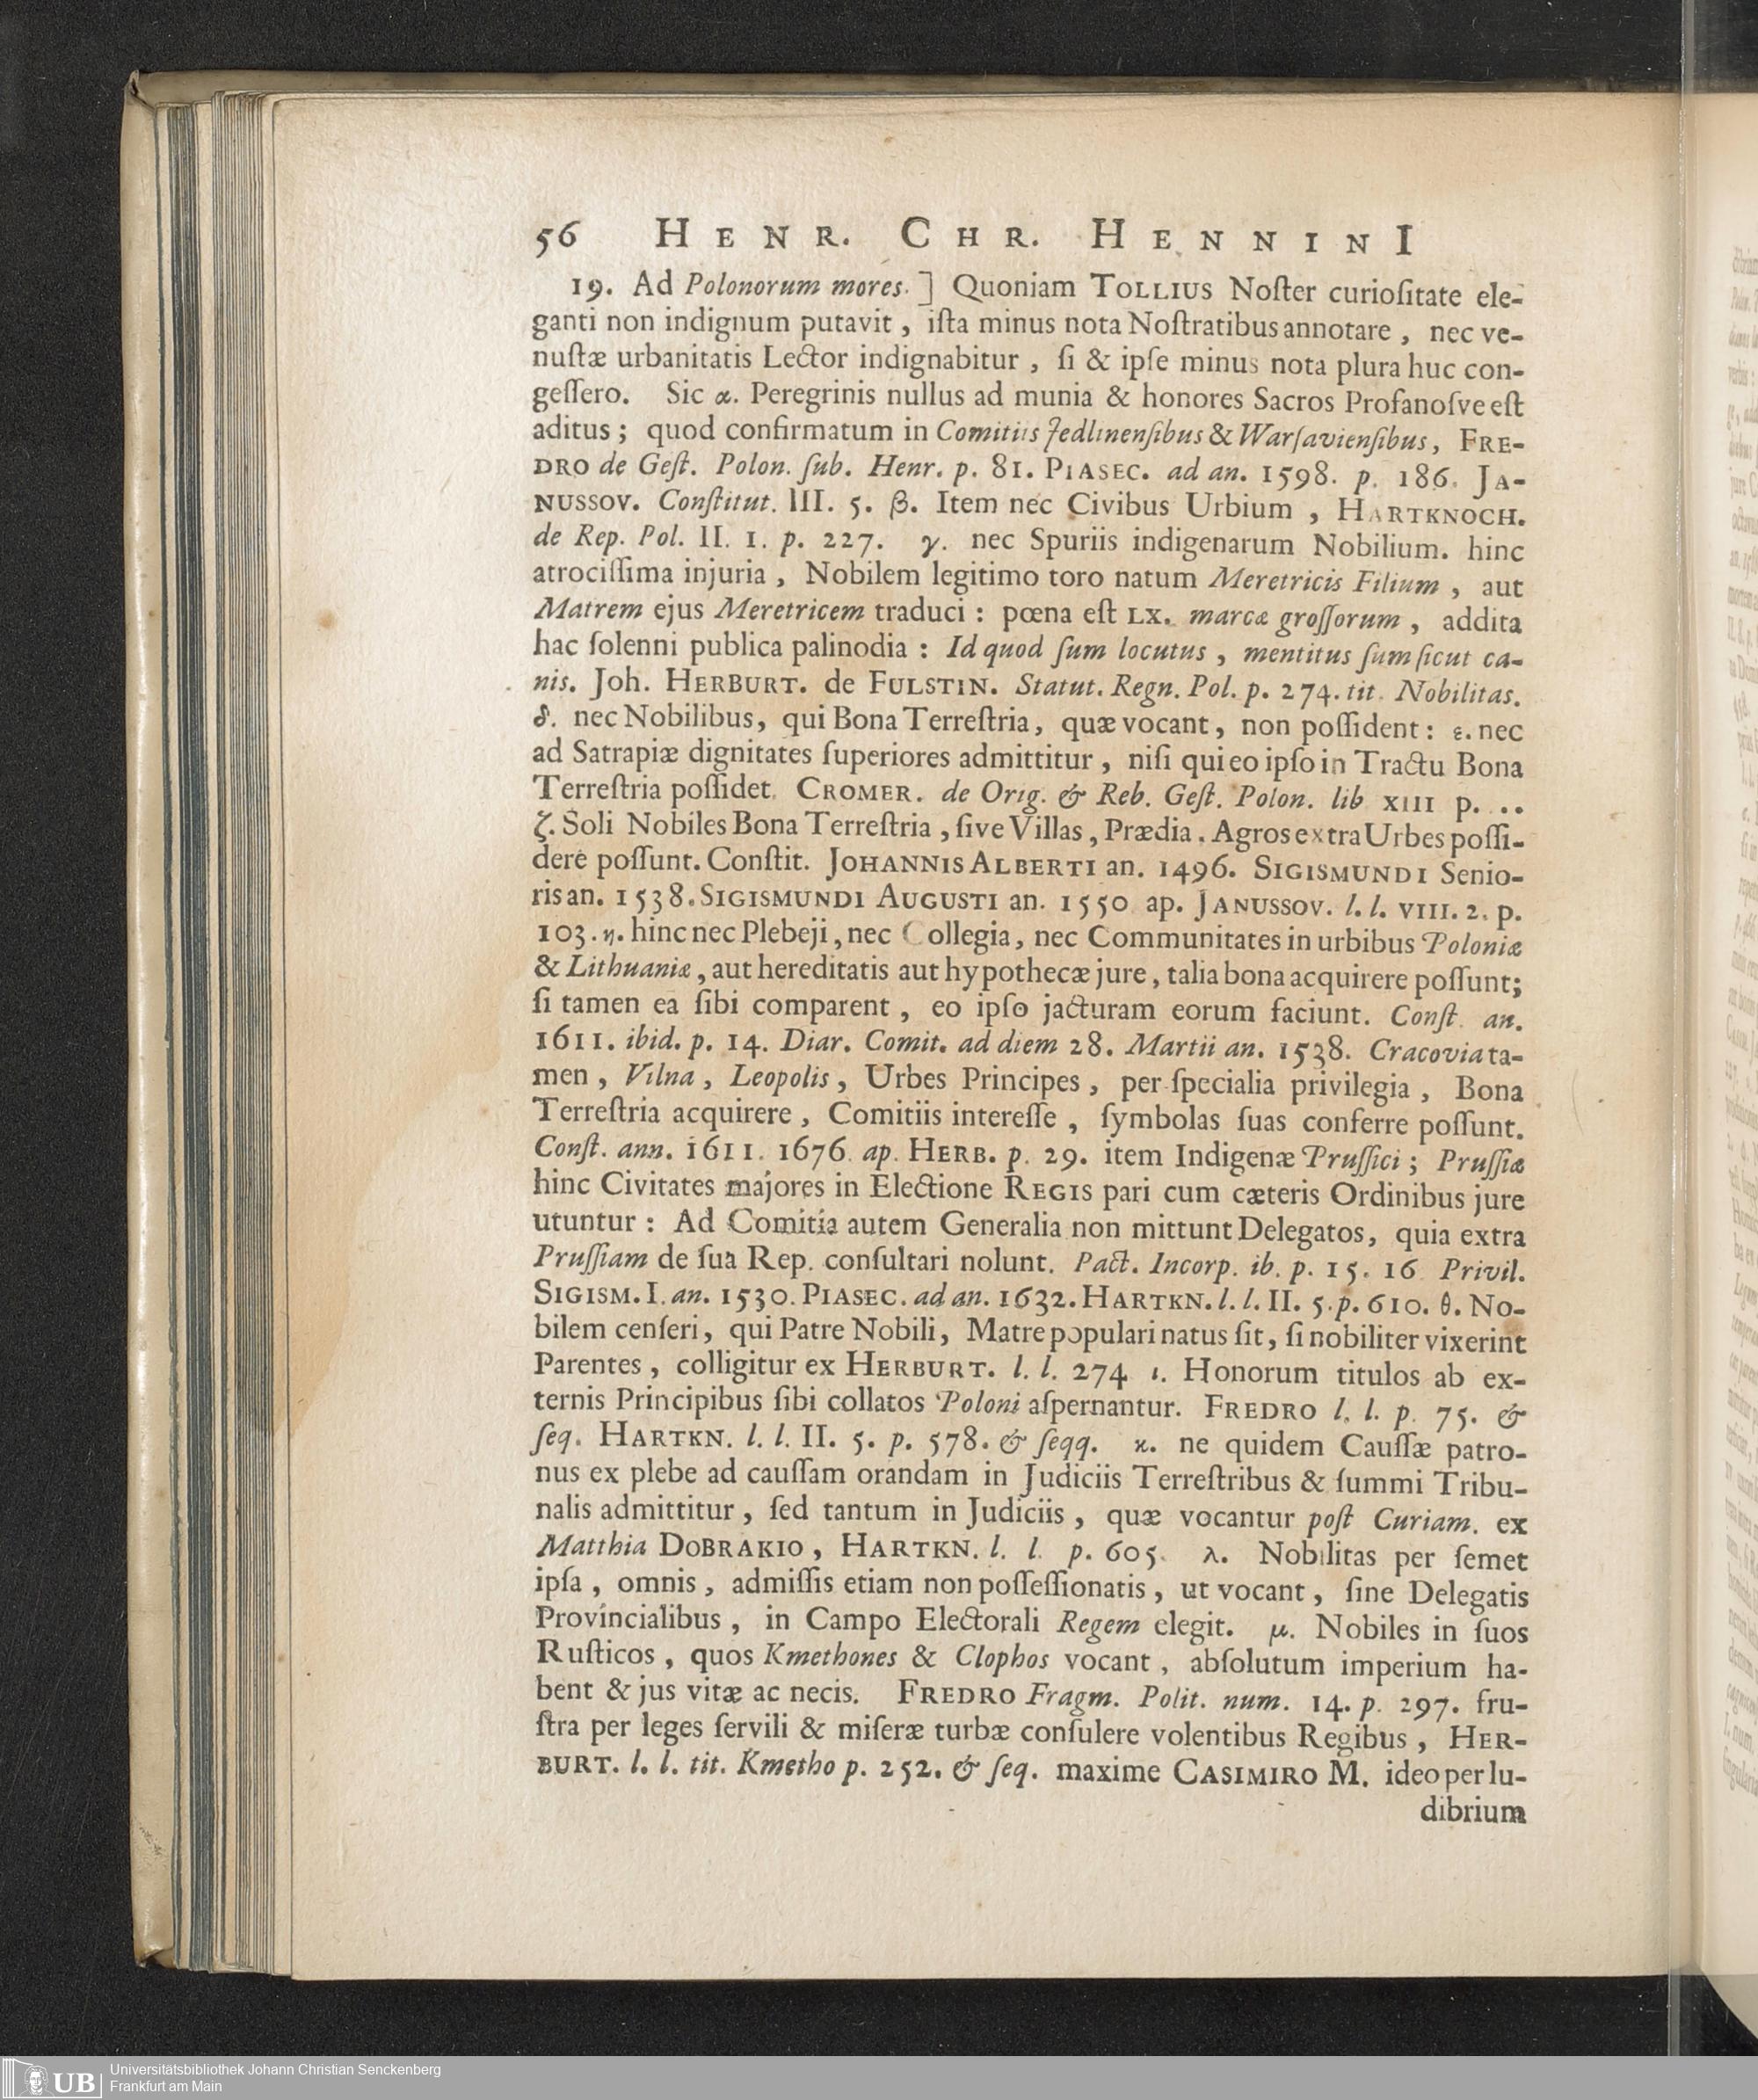 56 HENR. CHR. HENNINI
19. Ad Polonorum mores. ] Quoniam TOLLIUS Noſter curioſitate ele-
ganti non indignum putavit, iſta minus nota Noſtratibus annotare, nec ve-
nuſtæ urbanitatis Lector indignabitur, ſi & ipſe minus nota plura huc con-
geſſero. Sic α. Peregrinis nullus ad munia & honores Sacros Profanoſve eſt
aditus; quod confirmatum in Comitiis Jedlinenſibus & Warſavienſibus, FRE-
DRO de Geſt. Polon. ſub. Henr. p. 81. PIASEC. ad an. 1598. p. 186. JA-
NUSSOV. Conſtitut. III. 5. β. Item nec Civibus Urbium, HARTKNOCH.
de Rep. Pol. II. 1. p. 227. γ. nec Spuriis indigenarum Nobilium. hinc
atrociſſima injuria, Nobilem legitimo toro natum Meretricis Filium, aut
Matrem ejus Meretricem traduci: pœna eſt LX. marcæ groſſorum, addita
hac ſolenni publica palinodia: Id quod ſum locutus, mentitus ſum ſicut ca-
nis. Joh. HERBURT. de FULSTIN. Statut. Regn. Pol. p. 274. tit. Nobilitas.
δ. nec Nobilibus, qui Bona Terreſtria, quæ vocant, non poſſident: ε. nec
ad Satrapiæ dignitates ſuperiores admittitur, niſi qui eo ipſo in Tractu Bona
Terreſtria poſſidet. CROMER. de Orig. & Reb. Geſt. Polon. lib XIII p. ..
ζ. Soli Nobiles Bona Terreſtria, ſive Villas, Prædia. Agros extra Urbes poſſi-
dere poſſunt. Conſtit. JOHANNIS ALBERTI an. 1496. SIGISMUNDI Senio-
ris an. 1538. SIGISMUNDI AUGUSTI an. 1550 ap. JANUSSOV. l. l. VIII. 2. p.
103. η. hinc nec Plebeji, nec Collegia, nec Communitates in urbibus Poloniæ
& Lithuaniæ, aut hereditatis aut hypothecæ jure, talia bona acquirere poſſunt;
ſi tamen ea ſibi comparent, eo ipſo jacturam eorum faciunt. Conſt. an.
1611. ibid. p. 14. Diar. Comit. ad diem 28. Martii an. 1538. Cracovia ta-
men, Vilna, Leopolis, Urbes Principes, per ſpecialia privilegia, Bona
Terreſtria acquirere, Comitiis intereſſe, ſymbolas ſuas conferre poſſunt.
Conſt. ann. 1611. 1676. ap. HERB. p. 29. item Indigenæ Pruſſici; Pruſſiæ
hinc Civitates majores in Electione REGIS pari cum cæteris Ordinibus jure
utuntur: Ad Comitia autem Generalia non mittunt Delegatos, quia extra
Pruſſiam de ſua Rep. conſultari nolunt. Pact. Incorp. ib. p. 15. 16 Privil.
SIGISM. I. an. 1530. PIASEC. ad an. 1632. HARTKN. l. l. II. 5. p. 610. θ. No-
bilem cenſeri, qui Patre Nobili, Matre populari natus ſit, ſi nobiliter vixerint
Parentes, colligitur ex HERBURT. l. l. 274 ι. Honorum titulos ab ex-
ternis Principibus ſibi collatos Poloni aſpernantur. FREDRO l. l. p. 75. &
ſeq. HARTKN. l. l. II. 5. p. 578. & ſeqq. κ. ne quidem Cauſſæ patro-
nus ex plebe ad cauſſam orandam in Judiciis Terreſtribus & ſummi Tribu-
nalis admittitur, ſed tantum in Judiciis, quæ vocantur poſt Curiam. ex
Matthia DOBRAKIO, HARTKN. l. l. p. 605. λ. Nobilitas per ſemet
ipſa, omnis, admiſſis etiam non poſſeſſionatis, ut vocant, ſine Delegatis
Provincialibus, in Campo Electorali Regem elegit. μ. Nobiles in ſuos
Ruſticos, quos Kmethones & Clophos vocant, abſolutum imperium ha-
bent & jus vitæ ac necis. FREDRO Fragm. Polit. num. 14. p. 297. fru-
ſtra per leges ſervili & miſeræ turbæ conſulere volentibus Regibus, HER-
BURT. l. l. tit. Kmetho p. 252. & ſeq. maxime CASIMIRO M. ideo per lu-
dibrium
UB
Universitätsbibliothek Johann Christian Senckenberg
Frankfurt am Main